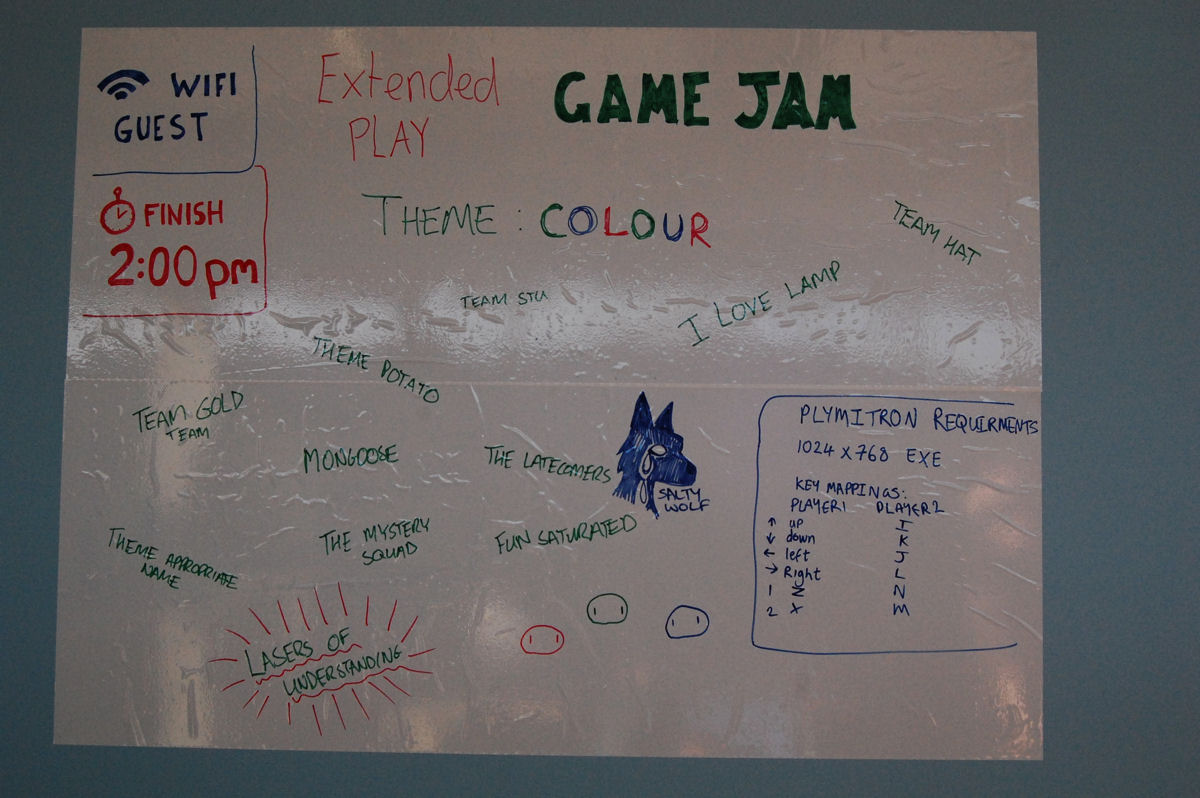 WIFI
GUEST
Extended
PLAY
GAME JAM
FINISH
2:00pm
THEME : COLOUR
TEAM HAT
TEAM STU
I LOVE LAMP
THEME POTATO
TEAM GOLD
TEAM
MONGOOSE
THE LATECOMERS
SALTY
WOLF
THEME APPROPRIATE
NAME
THE MYSTERY
SQUAD
FUN SATURATED
LASERS OF
UNDERSTANDING
PLYMITRON REQUIRMENTS
1024 X 768 EXE
KEY MAPPINGS:
PLAYER1 PLAYER2
↑ up I
↓ down K
← left J
→ Right L
1 Z N
2 X M